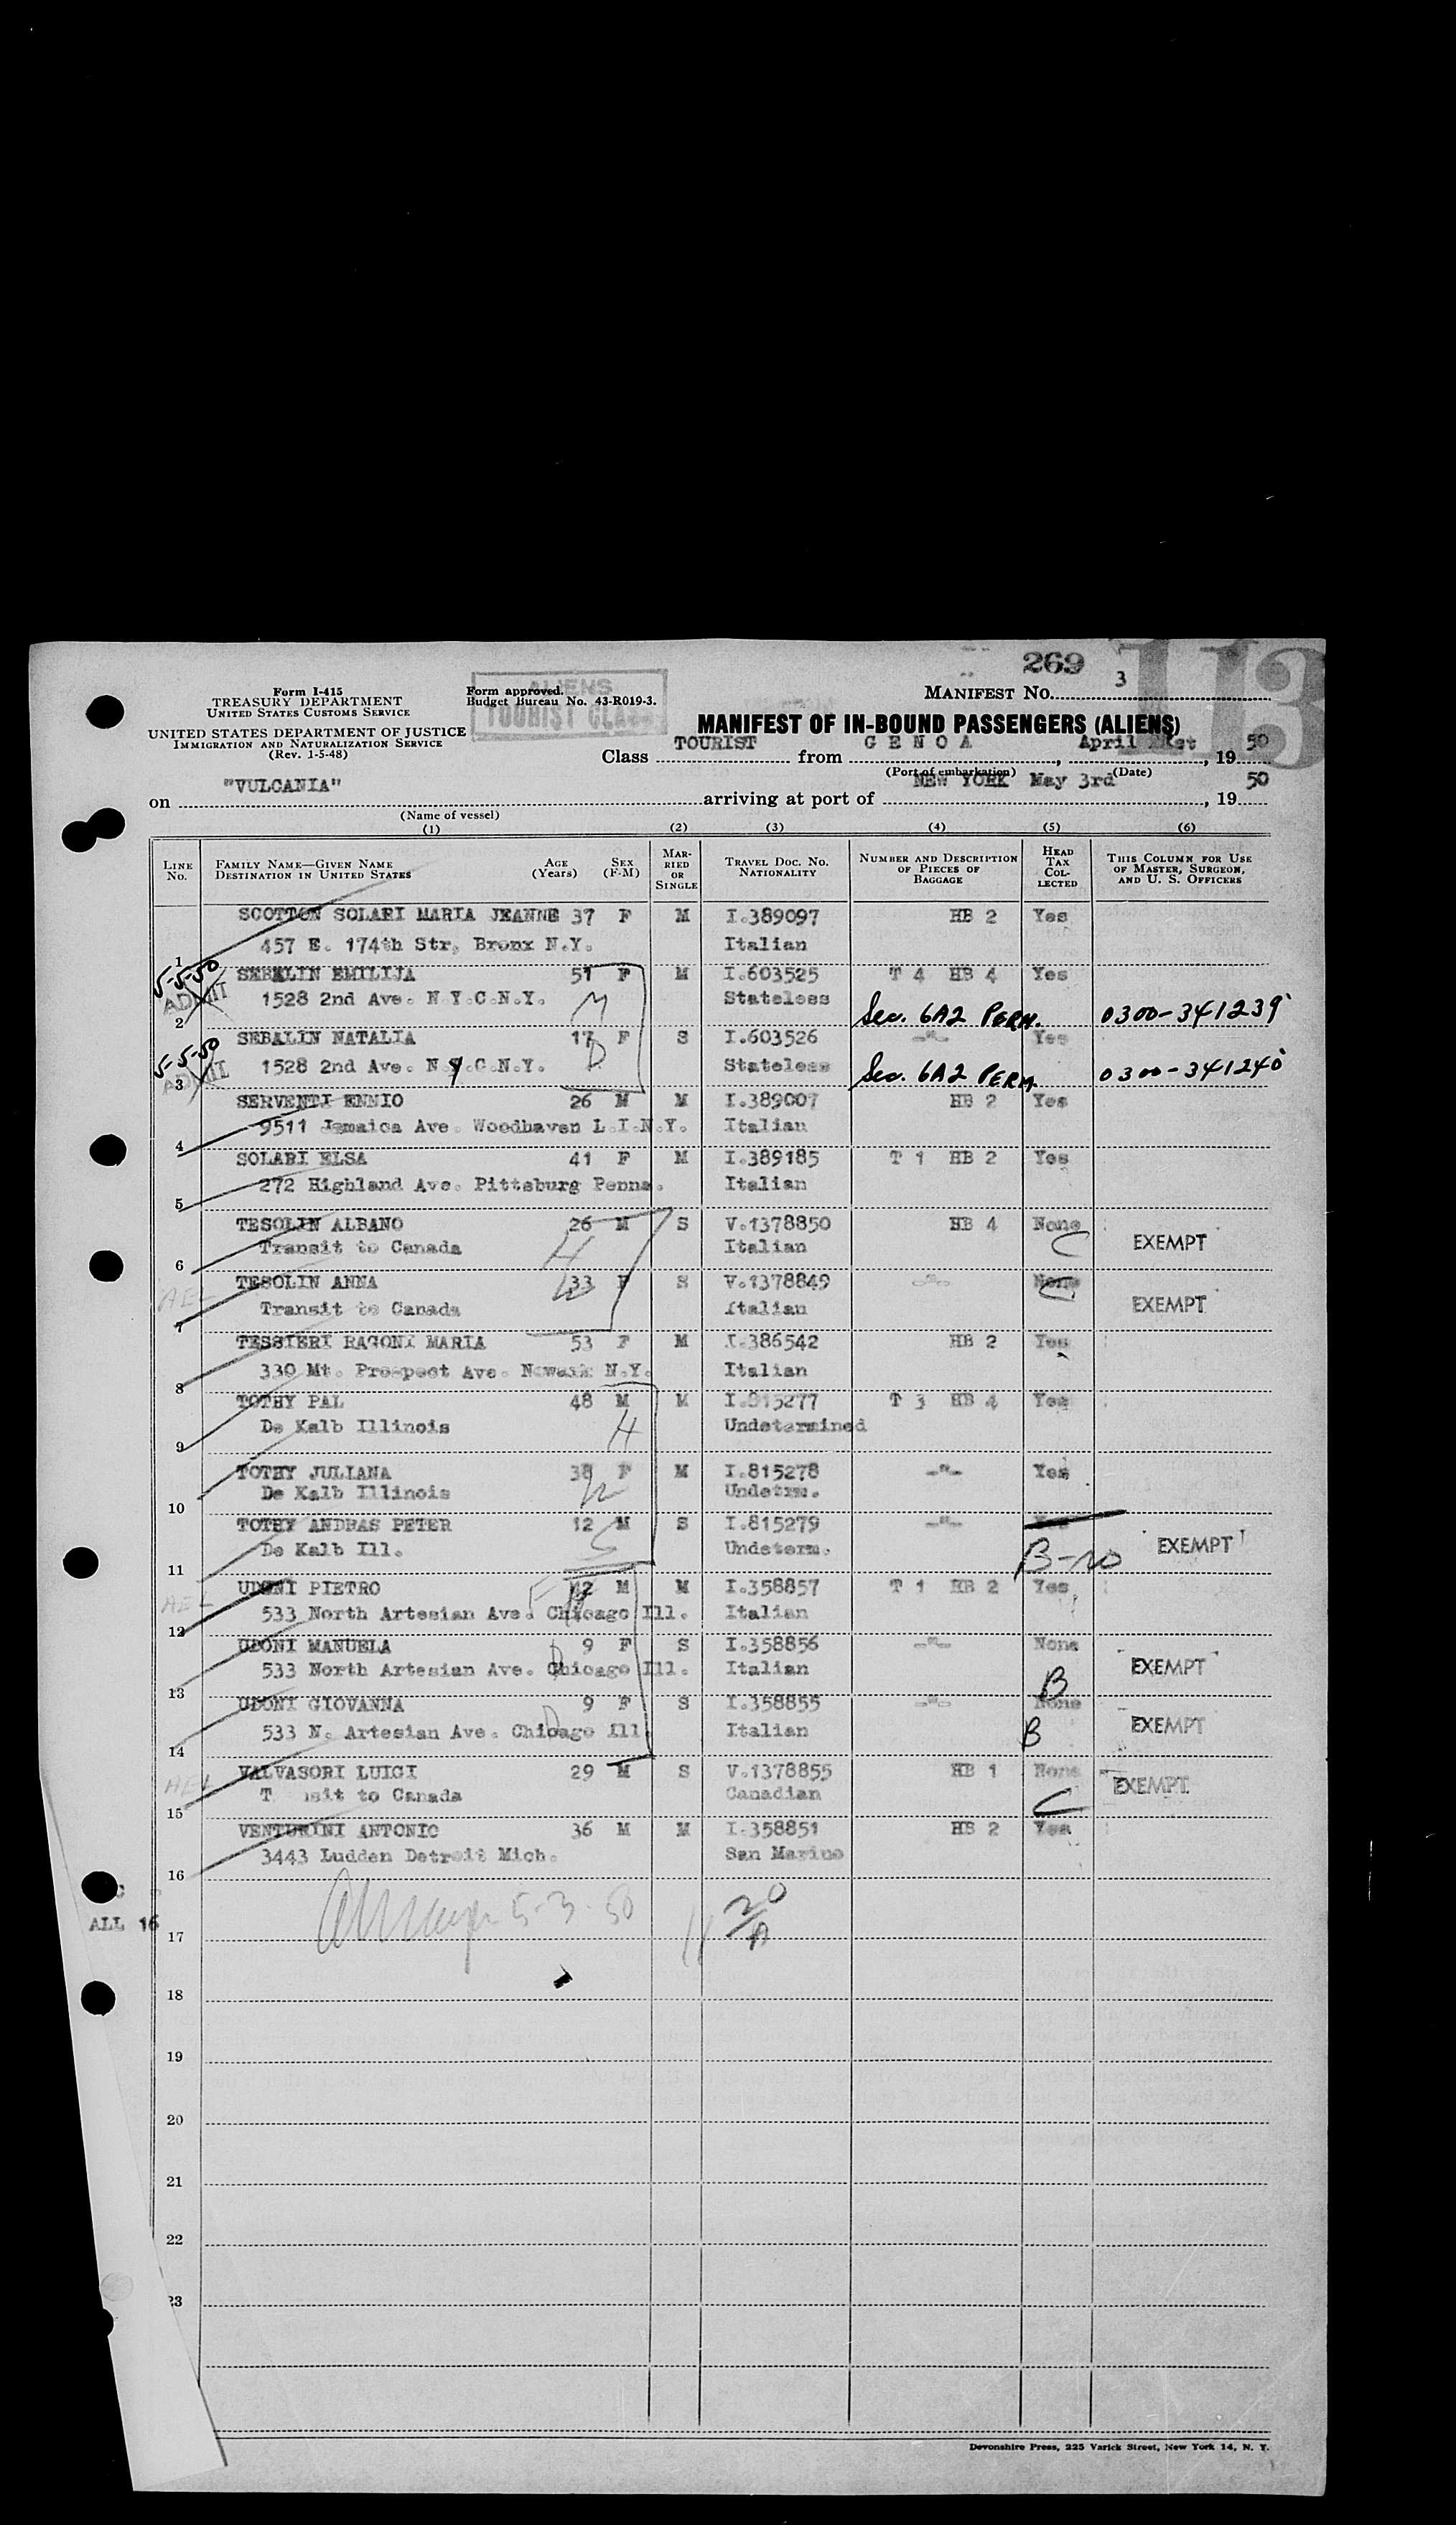 269
113
Form I-415
TREASURY DEPARTMENT
UNITED STATES CUSTOMS SERVICE
UNITED STATES DEPARTMENT OF JUSTICE
IMMIGRATION AND NATURALIZATION SERVICE
(Rev. 1-5-48)
Form approved.
Budget Bureau No. 43-R019-3.
ALIENS
TOURIST CLASS
MANIFEST No. 3
MANIFEST OF IN-BOUND PASSENGERS (ALIENS)
Class TOURIST from G E N O A, April, 19 50
(Port of embarkation) (Date)
on "VULCANIA" arriving at port of NEW YORK May 3rd, 19 50
(Name of vessel)
(1) (2) (3) (4) (5) (6)
LINE No. FAMILY NAME—GIVEN NAME DESTINATION IN UNITED STATES AGE (Years) SEX (F-M) MARRIED OR SINGLE TRAVEL DOC. NO. NATIONALITY NUMBER AND DESCRIPTION OF PIECES OF BAGGAGE HEAD TAX COLLECTED THIS COLUMN FOR USE OF MASTER, SURGEON, AND U. S. OFFICERS
SCOTTON SOLARI MARIA JEANNE 37 F M I.389097 HB 2 Yes
1 457 E. 174th Str, Bronx N.Y. Italian
5-5-50 SEBALIN EMILIJA 51 F M I.603525 T 4 HB 4 Yes
ADMIT 1528 2nd Ave. N Y.C.N.Y. M Stateless Sec. 6A2 PERM. 0300-341239
2
5-5-50 SEBALIN NATALIA 17 F S I.603526 -"- Yes
ADMIT 1528 2nd Ave. N.Y.C.N.Y. D Stateless Sec. 6A2 PERM 0300-341240
3
SERVENTI ENNIO 26 M M I.389007 HB 2 Yes
4 9511 Jamaica Ave. Woodhaven L.I.N.Y. Italian
SOLARI ELSA 41 F M I.389185 T 1 HB 2 Yes
5 272 Highland Ave. Pittsburg Penna. Italian
TESOLIN ALBANO 26 M S V.1378850 HB 4 None
6 Transit to Canada H Italian C EXEMPT
TESOLIN ANNA 33 F S V.1378849 -"- None
7 Transit to Canada Italian C EXEMPT
TESSIERI RAGONI MARIA 53 F M I.386542 HB 2 Yes
8 330 Mt. Prospect Ave. Newark N.Y. Italian
TOTHY PAL 48 M M I.815277 T 3 HB 4 Yes
9 De Kalb Illinois H Undetermined
TOTHY JULIANA 38 F M I.815278 -"- Yes
10 De Kalb Illinois W Undetrm.
TOTHY ANDRAS PETER 12 M S I.815279 -"- Yes
11 De Kalb Ill. S Undeterm. B-no EXEMPT
UDONI PIETRO 42 M M I.358857 T 1 HB 2 Yes
12 533 North Artesian Ave. Chicago Ill. Italian
UDONI MANUELA 9 F S I.358856 -"- None
13 533 North Artesian Ave. Chicago Ill. D Italian B EXEMPT
UDONI GIOVANNA 9 F S I.358855 -"- None
14 533 N. Artesian Ave. Chicago Ill D Italian B EXEMPT
VALVASORI LUIGI 29 M S V.1378855 HB 1 None
15 T sit to Canada Canadian C EXEMPT
VENTURINI ANTONIO 36 M M I.358851 HB 2 Yes
16 3443 Ludden Detroit Mich. San Marino
5-3-50
ALL 16
17
18
19
20
21
22
23
Devonshire Press, 225 Varick Street, New York 14, N. Y.